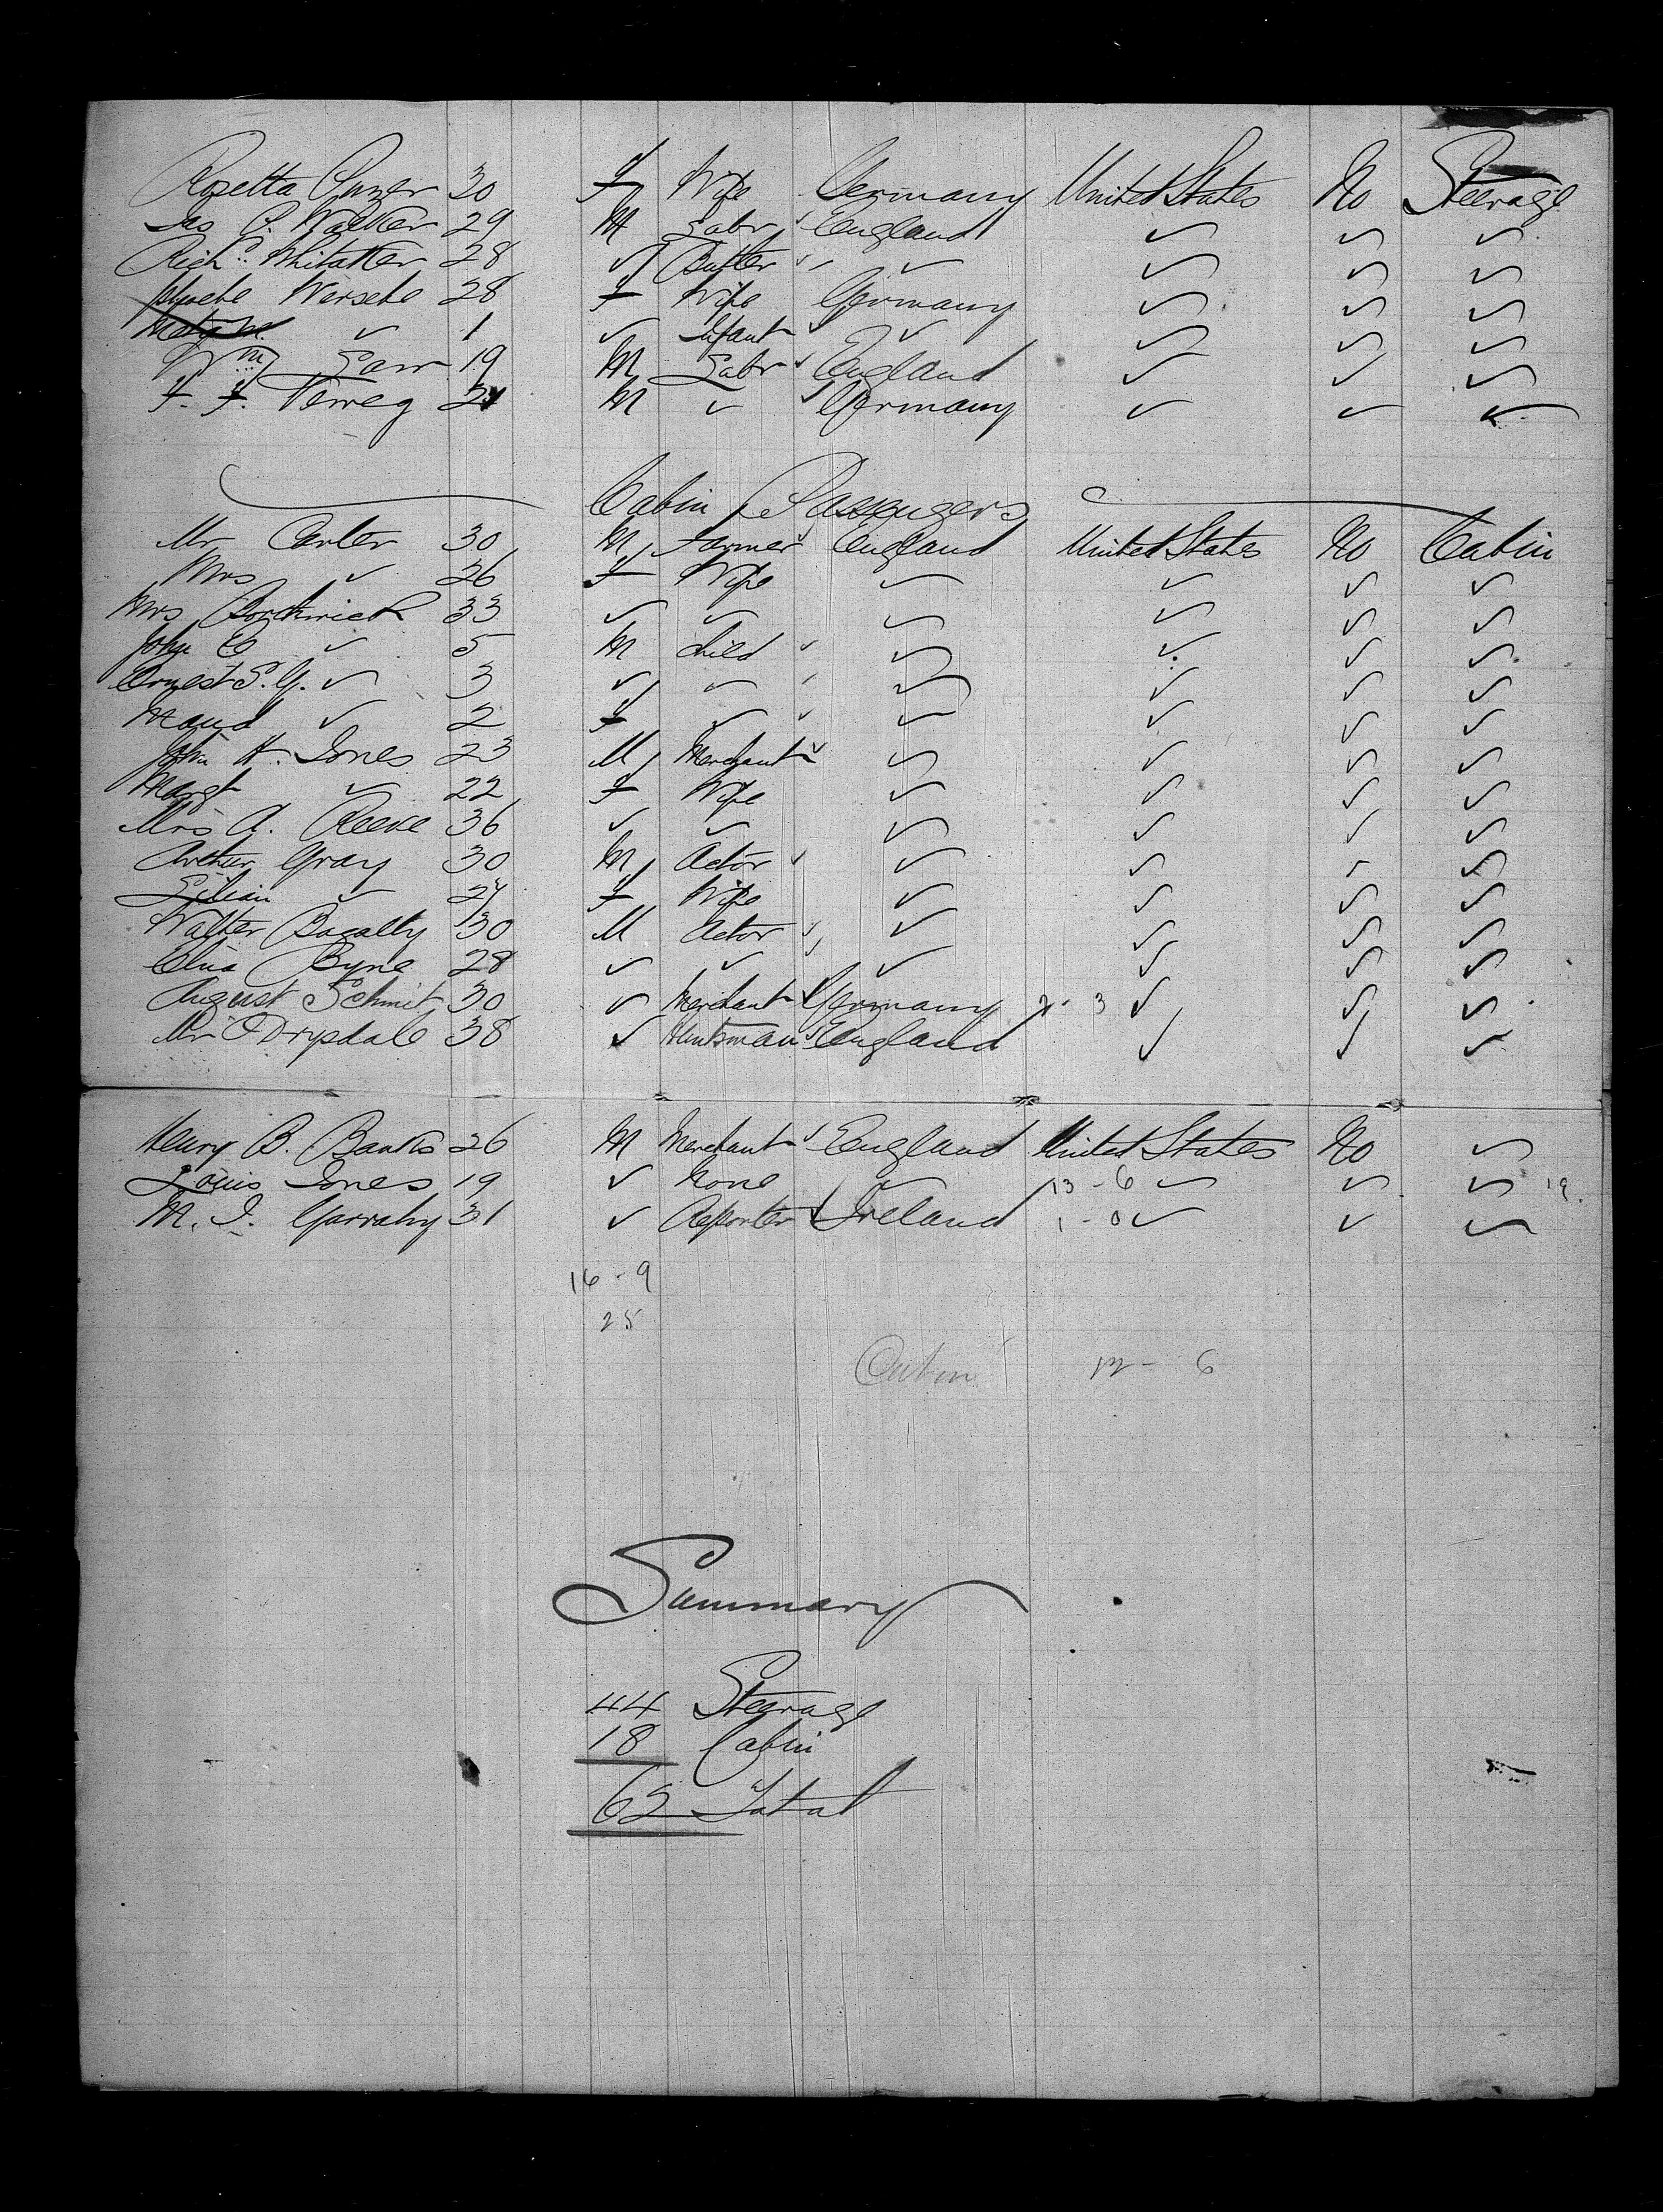 Rosetta 30 F Wife Germany United States No Steerage
Jas C. Walker 29 M Labr ✓ England ✓ ✓ ✓
Richd Whitaker 28 ✓ Butler ✓ ✓ ✓ ✓ ✓
Wersebe 28 F Wife Germany ✓ ✓ ✓
✓ 1 ✓ Infant ✓ ✓ ✓ ✓ ✓
Wm 19 M Labr ✓ England ✓ ✓ ✓
F. F. 21 M ✓ ✓ Germany ✓ ✓ ✓
Cabin Passengers
Mr Carter 30 M Farmer ✓ England United States No Cabin
Mrs ✓ 26 F Wife ✓ ✓ ✓ ✓
Mrs Borthwick 33 ✓ ✓ ✓ ✓ ✓ ✓
John C ✓ 5 M Child ✓ ✓ ✓ ✓ ✓
Ernest S. G. ✓ 3 ✓ ✓ ✓ ✓ ✓ ✓ ✓
Maud ✓ 2 F ✓ ✓ ✓ ✓ ✓ ✓
John H. Jones 23 M Merchant ✓ ✓ ✓ ✓ ✓
Margt ✓ 22 F Wife ✓ ✓ ✓ ✓
Mrs A. Reeve 36 ✓ ✓ ✓ ✓ ✓ ✓
Arthur Gray 30 M Actor ✓ ✓ ✓ ✓ ✓
Lilian ✓ 27 F Wife ✓ ✓ ✓ ✓
Walter 30 M Actor ✓ ✓ ✓ ✓ ✓
Byne 28 ✓ ✓ ✓ ✓ ✓ ✓ ✓
August Schmit 30 ✓ Merchant ✓ Germany 2 - 3 ✓ ✓ ✓
Mr Drysdale 38 ✓ Huntsman ✓ England ✓ ✓ ✓
Henry B. Banks 26 M Merchant ✓ England United States No ✓
Louis Jones 19 ✓ None ✓ 13 - 6 ✓ ✓ ✓ 19.
M. I. Garrahy 31 ✓ Reporter ✓ Ireland 1 - 0 ✓ ✓ ✓
16 - 9
25
Cabin 12 - 6
Summary
44 Steerage
18 Cabin
62 Total